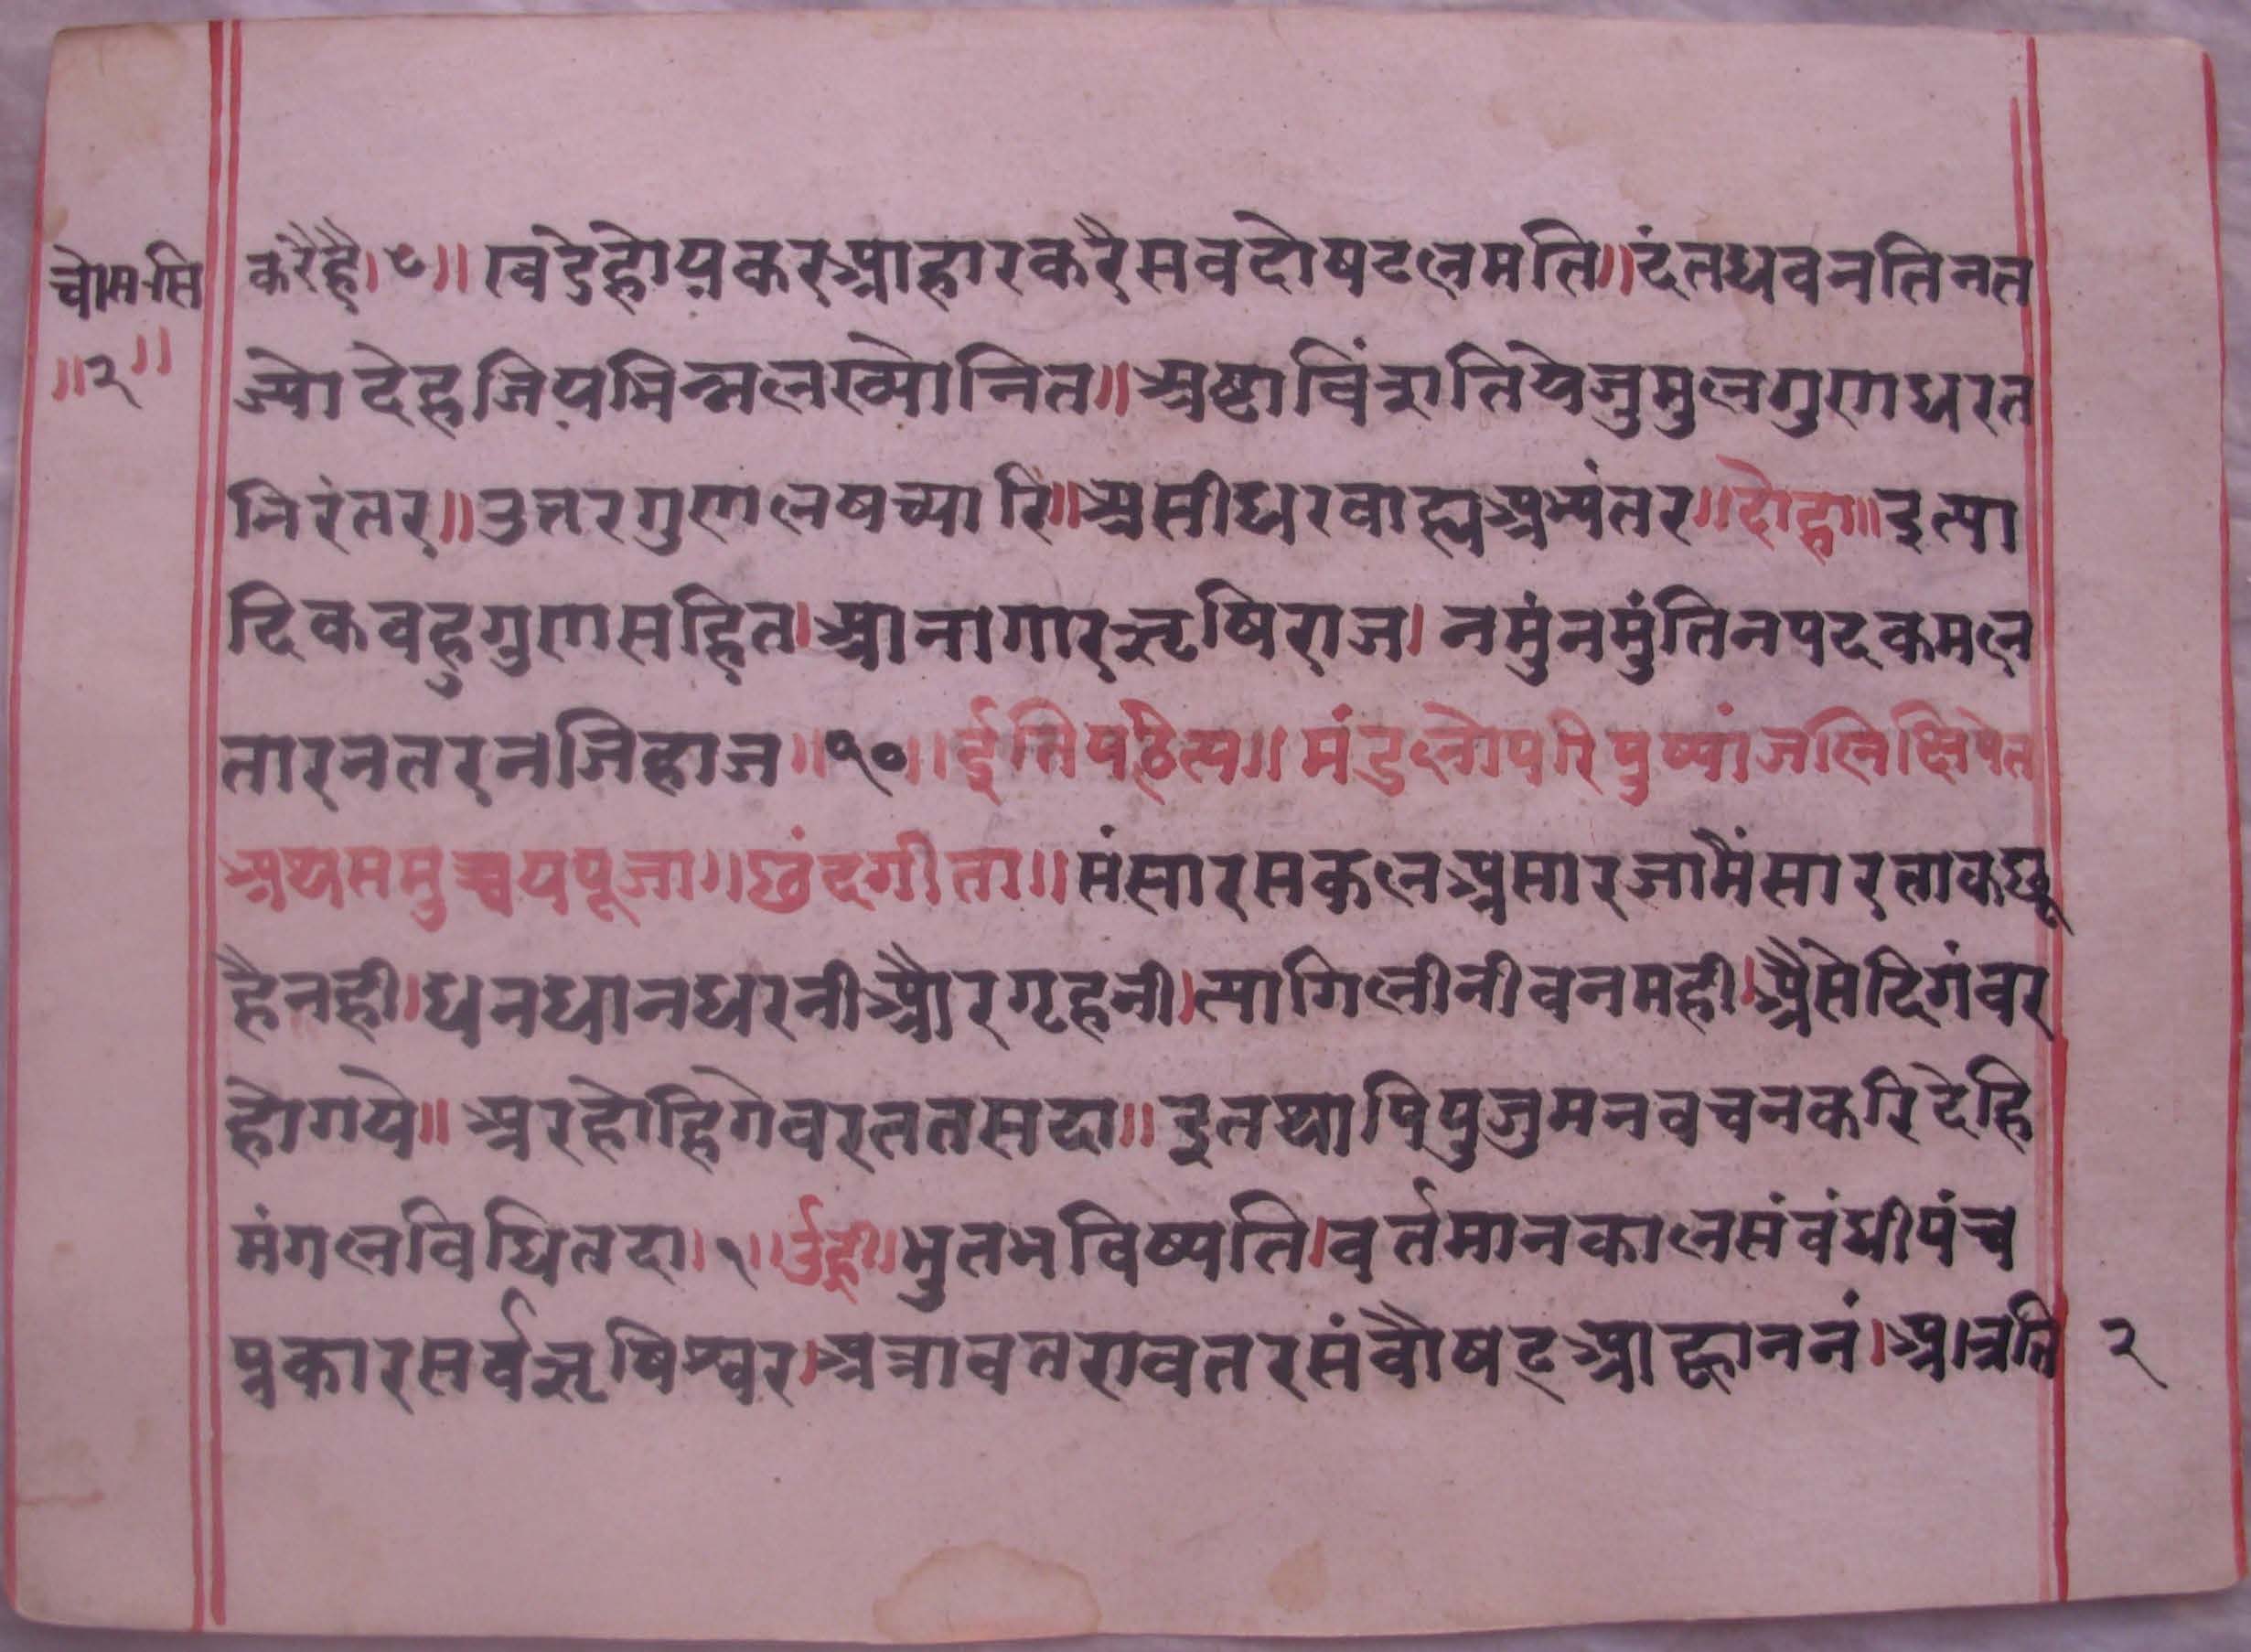 चोससि
॥२॥
करैहै।९॥ खडेहोयकरआहारकरैसवदोषटलमति॥दंतधवनतिनत
ज्योदेहजियभिन्नलख्योनित॥अष्टाविंशतियेजुमुलगुणधरत
निरंतर॥उत्तरगुणलषच्यारि॥असीधरवाह्यअभ्यंतर॥दोहा॥इत्या
दिकवहुगुणसहित।आनागारऋषिराज। नमुंनमुंतिनपदकमल
तारनतरनजिहाज॥१०॥ईतिपठित्य॥मंडलोपरिपुष्पांजलिक्षिपेत
अथसमुच्चयपूजा॥छंदगीता॥संसारसकलअसारजामैंसारताकछू
हैनही।धनधानधरनीऔरगृहनी।त्यागिलीनीवनमही।अैसेदिगंवर
होगये॥अरहोहिगेवरततसदा॥इतथापिपुजुमनवचनकरिदेहि
मंगलविधितदा।१॥उँह्री॥भुतभविष्यति।वर्तमानकालसंवंधीपंच
प्रकारसर्वऋषिश्वर।अत्रावतरावतरसंवौषट्आह्वाननं।अ।त्रति
२